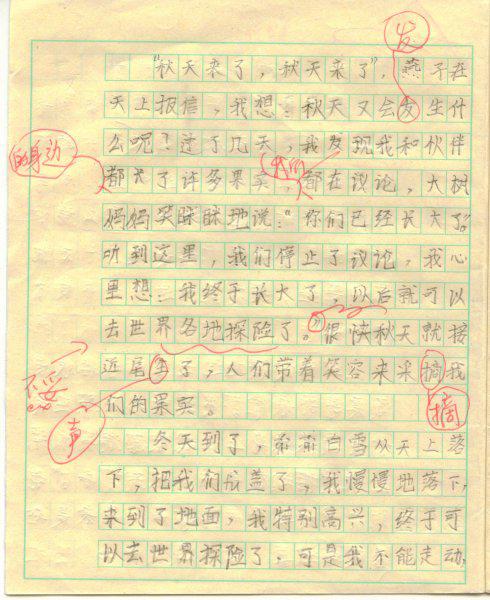 发
“秋天来了，秋天来了”，燕子在
天上报信，我想：秋天又会发生什
么呢？过了几天，我发现我和伙伴
的身边
我们
都长了许多果实，都在议论，大树
妈妈笑眯眯地说：“你们已经长大了。”
听到这里，我们停止了议论，我心
里想：我终于长大了，以后就可以
去世界各地探险了。”很快秋天就接
近尾声了，人们带着笑容来采摘我
不妥
们的果实。
声
摘
冬天到了，白雪从天上落
下，把我们覆盖了，我慢慢地落下，
来到了地面，我特别高兴，终于可
以去世界探险了，可是我不能走动，